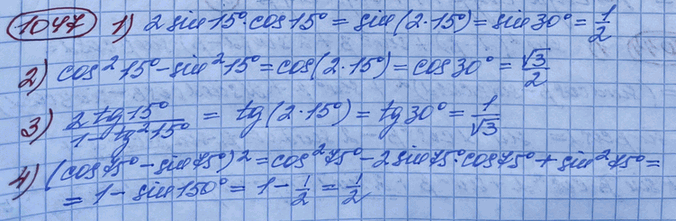 1047 1) 2 sin 15° · cos 15° = sin (2 · 15°) = sin 30° = 1/2
2) cos² 15° - sin² 15° = cos (2 · 15°) = cos 30° = √3/2
3) 2 tg 15° / 1 - tg² 15° = tg (2 · 15°) = tg 30° = 1/√3
4) (cos 75° - sin 75°)² = cos² 75° - 2 sin 75° · cos 75° + sin² 75° =
= 1 - sin 150° = 1 - 1/2 = 1/2